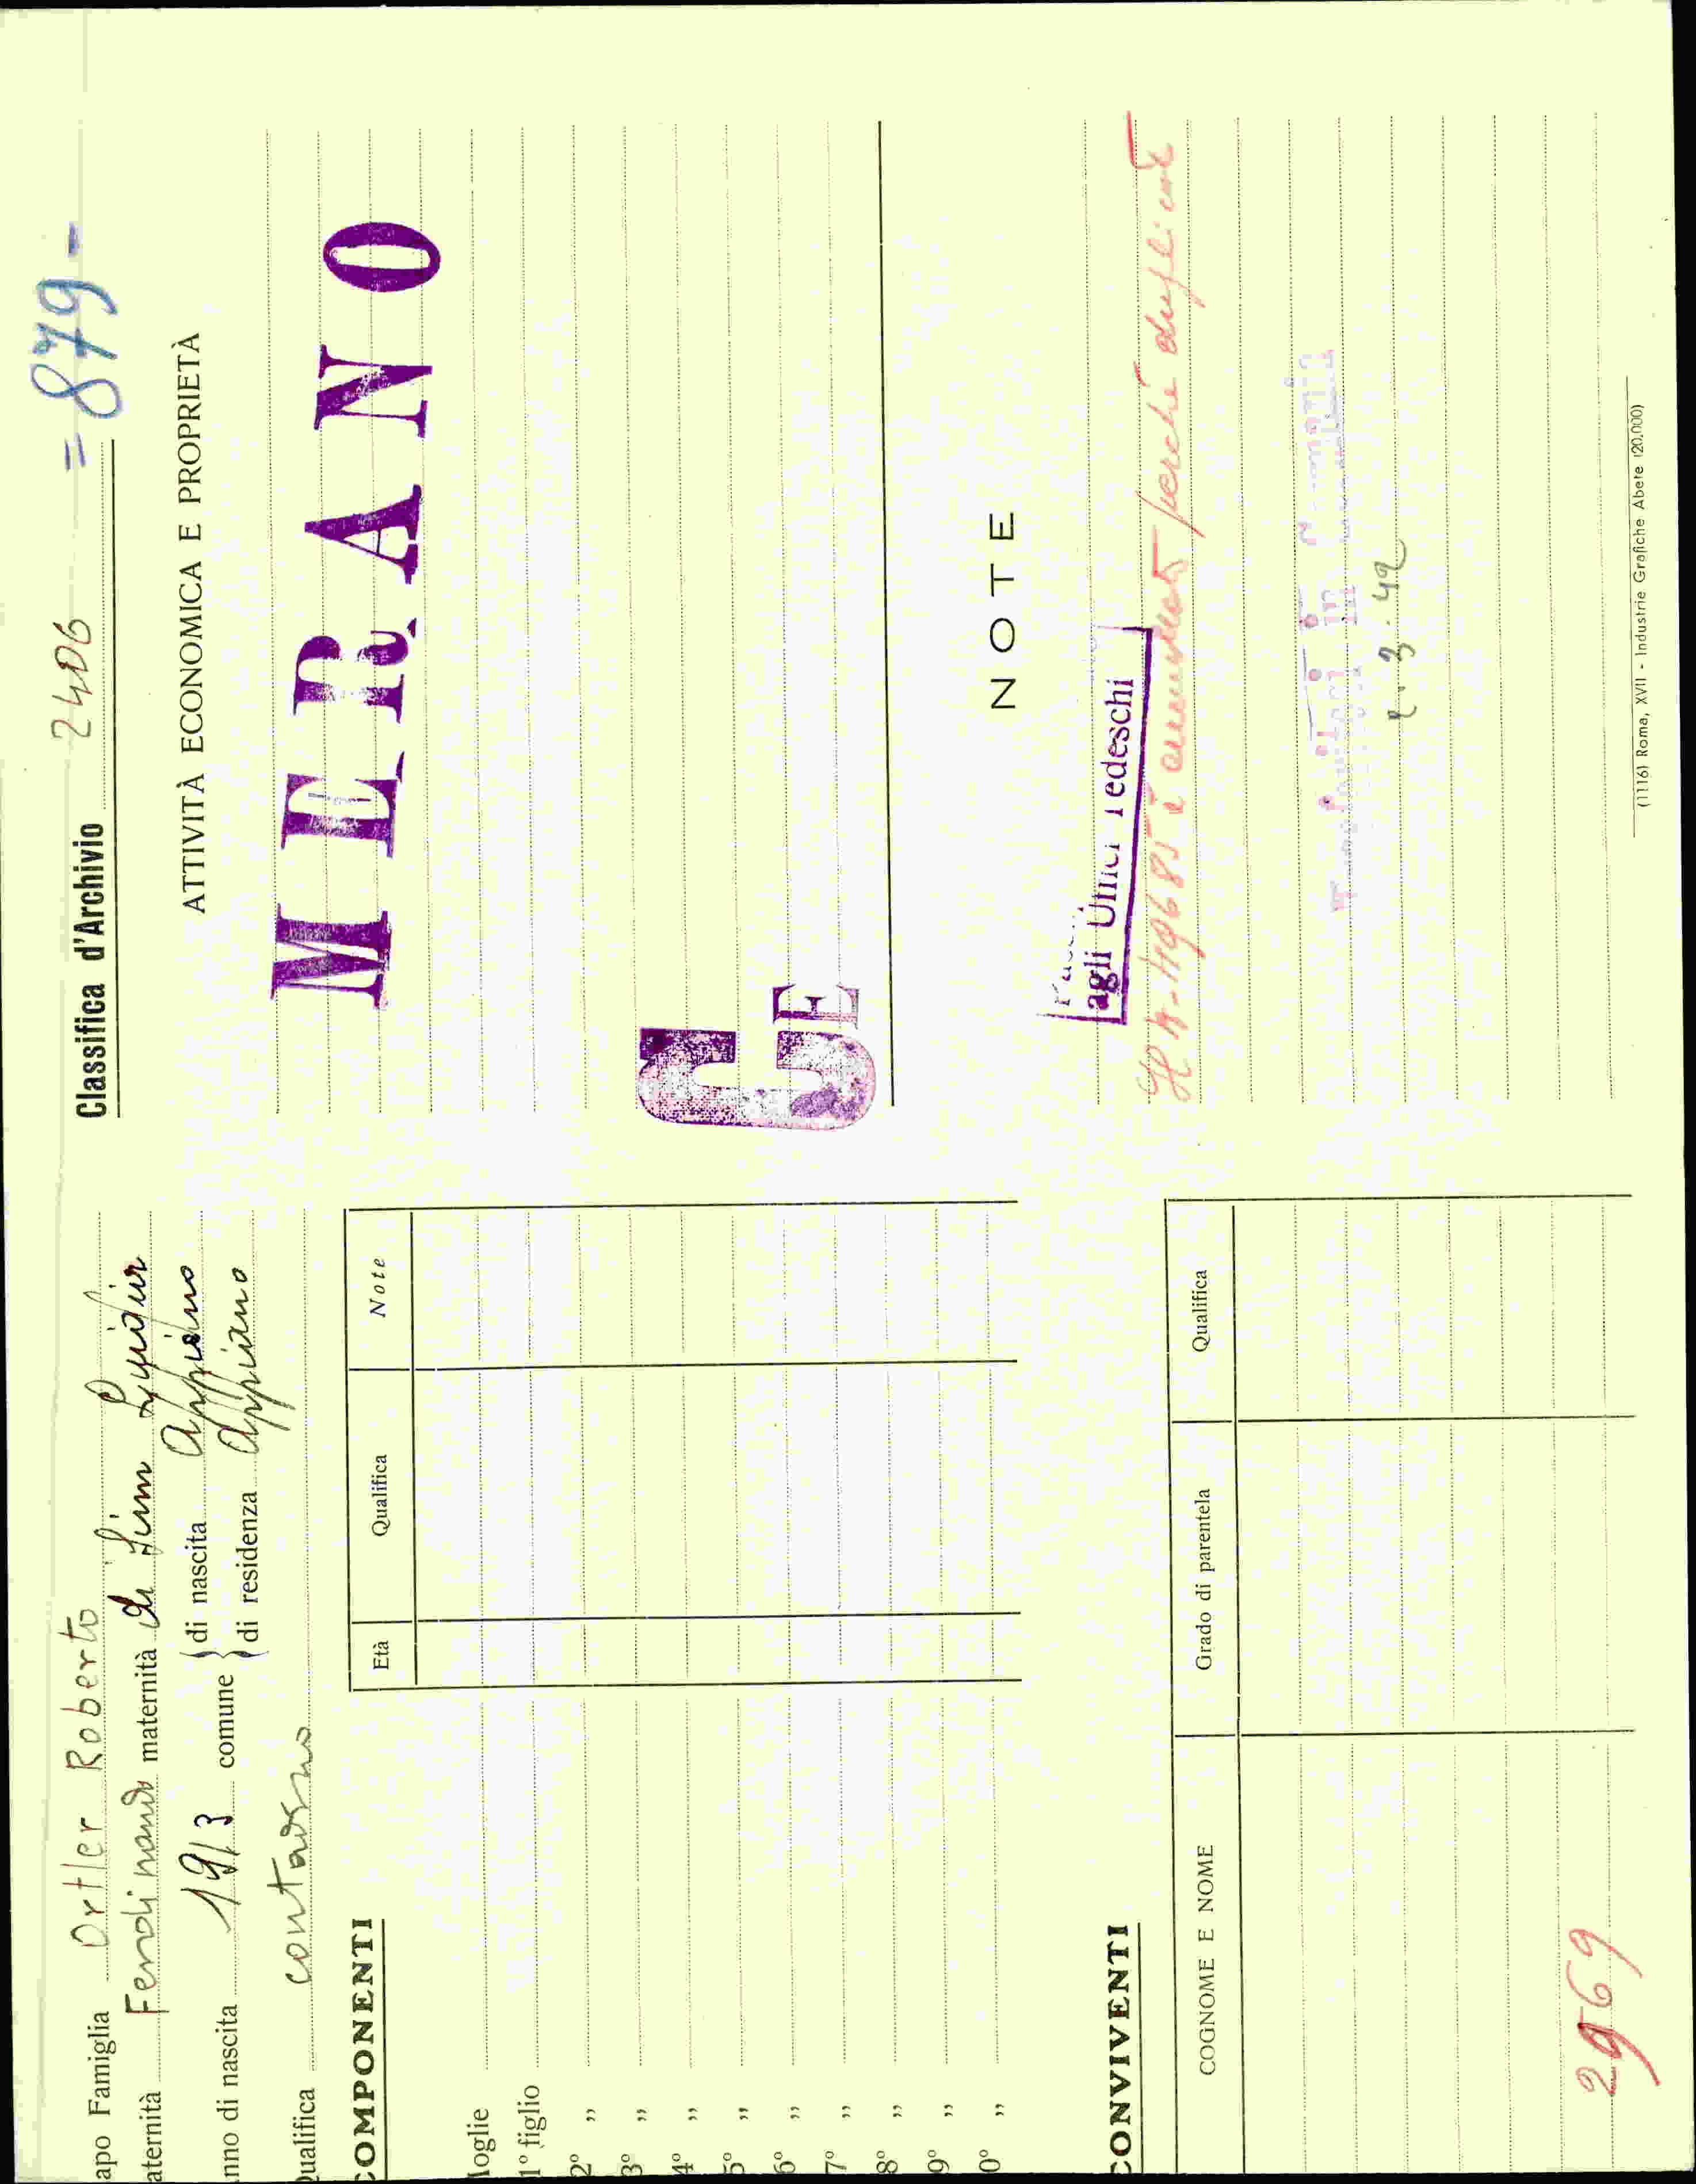 apo Famiglia Ortler Roberto
aternità Ferdinando maternità di
nno di nascita 1913 comune di nascita Appiano
di residenza Appiano
ualifica contadino
COMPONENTI
Età Qualifica Note
loglie
1º figlio
2º „
3º „
4º „
5º „
6º „
7º „
8º „
9º „
0º „
CONVIVENTI
COGNOME E NOME Grado di parentela Qualifica
2969
Classifica d'Archivio 2406 = 879 -
ATTIVITÀ ECONOMICA E PROPRIETÀ
MERANO
GE
NOTE
agli Uffici Tedeschi
Il N- è annullato perché duplicato
in Germania
3.42
(1116) Roma, XVII - Industrie Grafiche Abete (20.000)